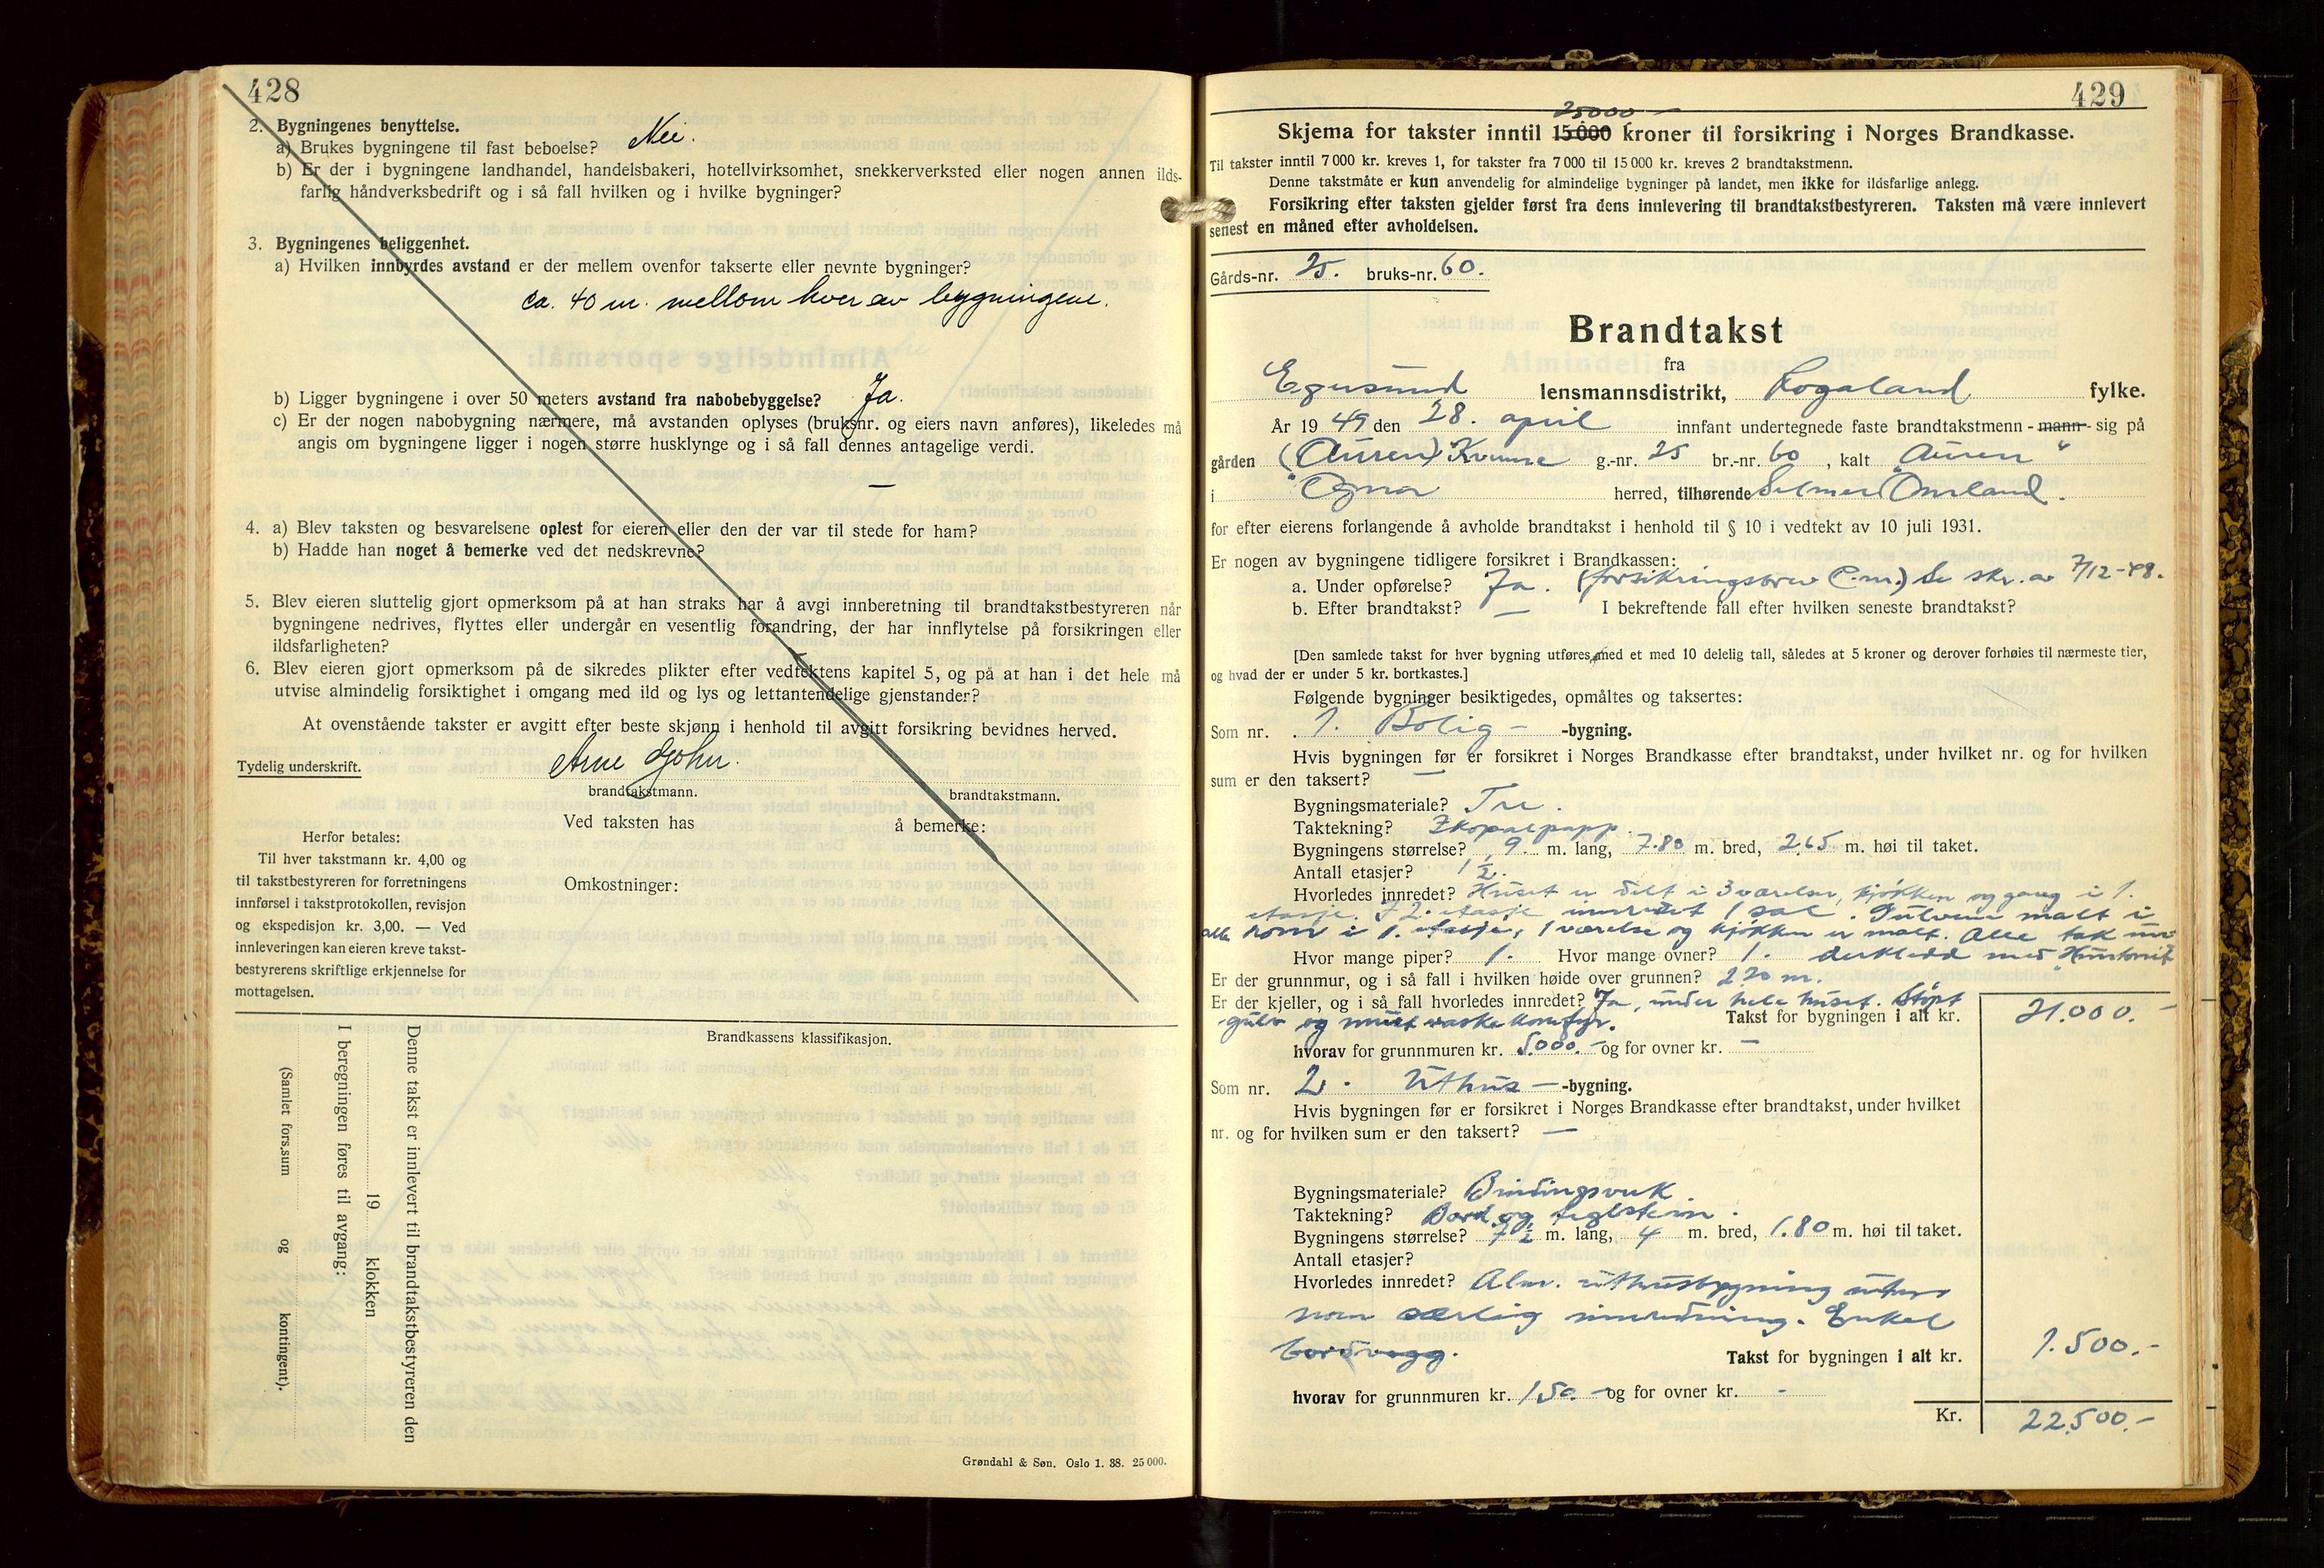 428
2. Bygningenes benyttelse.
a) Brukes bygningene til fast beboelse? Nei.
b) Er der i bygningene landhandel, handelsbakeri, hotellvirksomhet, snekkerverksted eller nogen annen ilds-
farlig håndverksbedrift og i så fall hvilken og i hvilke bygninger?
3. Bygningenes beliggenhet.
a) Hvilken innbyrdes avstand er der mellem ovenfor takserte eller nevnte bygninger?
ca. 40 m. mellom hver av bygningene.
b) Ligger bygningene i over 50 meters avstand fra nabobebyggelse? Ja.
c) Er der nogen nabobygning nærmere, må avstanden oplyses (bruksnr. og eiers navn anføres), likeledes må
angis om bygningene ligger i nogen større husklynge og i så fall dennes antagelige verdi.
—
4. a) Blev taksten og besvarelsene oplest for eieren eller den der var til stede for ham?
b) Hadde han noget å bemerke ved det nedskrevne?
5. Blev eieren sluttelig gjort opmerksom på at han straks har å avgi innberetning til brandtakstbestyreren når
bygningene nedrives, flyttes eller undergår en vesentlig forandring, der har innflytelse på forsikringen eller
ildsfarligheten?
6. Blev eieren gjort opmerksom på de sikredes plikter efter vedtektens kapitel 5, og på at han i det hele må
utvise almindelig forsiktighet i omgang med ild og lys og lettantendelige gjenstander?
At ovenstående takster er avgitt efter beste skjønn i henhold til avgitt forsikring bevidnes herved.
Tydelig underskrift. Arne
brandtakstmann. brandtakstmann.
Ved taksten has å bemerke:
Herfor betales:
Til hver takstmann kr. 4,00 og
til takstbestyreren for forretningens
innførsel i takstprotokollen, revisjon
og ekspedisjon kr. 3,00. — Ved
innleveringen kan eieren kreve takst-
bestyrerens skriftlige erkjennelse for
mottagelsen.
Omkostninger:
Denne takst er innlevert til brandtakstbestyreren den
19 klokken
I beregningen føres til avgang:
(Samlet fors.sum og kontingent).
Brandkassens klassifikasjon.
Grøndahl & Søn. Oslo 1. 38. 25 000.
429
25000 —
Skjema for takster inntil 15 000 kroner til forsikring i Norges Brandkasse.
Til takster inntil 7 000 kr. kreves 1, for takster fra 7 000 til 15 000 kr. kreves 2 brandtakstmenn.
Denne takstmåte er kun anvendelig for almindelige bygninger på landet, men ikke for ildsfarlige anlegg.
Forsikring efter taksten gjelder først fra dens innlevering til brandtakstbestyreren. Taksten må være innlevert
senest en måned efter avholdelsen.
Gårds-nr. 25. bruks-nr. 60.
Brandtakst
fra
Egersund lensmannsdistrikt, Rogaland fylke.
År 1949 den 28. april innfant undertegnede faste brandtakstmenn - mann - sig på
gården (Auren) g.-nr. 25 br.-nr. 60, kalt "Auren"
i "Ogna herred, tilhørende Selmer Omland.
for efter eierens forlangende å avholde brandtakst i henhold til § 10 i vedtekt av 10 juli 1931.
Er nogen av bygningene tidligere forsikret i Brandkassen:
a. Under opførelse? Ja. (forsikringsbrev Se skr. av 7/12-48.
b. Efter brandtakst? — I bekreftende fall efter hvilken seneste brandtakst?
[Den samlede takst for hver bygning utføres med et med 10 delelig tall, således at 5 kroner og derover forhøies til nærmeste tier,
og hvad der er under 5 kr. bortkastes.]
Følgende bygninger besiktigedes, opmåltes og taksertes:
Som nr. 1. Bolig - -bygning.
Hvis bygningen før er forsikret i Norges Brandkasse efter brandtakst, under hvilket nr. og for hvilken
sum er den taksert? —
Bygningsmateriale? Tre.
Taktekning? Ekopalpapp.
Bygningens størrelse? 9. m. lang, 7.80 m. bred, 2,65 m. høi til taket.
Antall etasjer? 1 ½.
Hvorledes innredet? Huset er delt i 3 værelser, kjøkken og gang i 1.
etasje. I 2. etasje innredet 1 sal. Gulvene malt i
alle rom i 1. etasje, 1 værelse og kjøkken er malt. Alle tak
Hvor mange piper? 1. Hvor mange ovner? 1. med "Huntonit
Er der grunnmur, og i så fall i hvilken høide over grunnen? 2.20 m.
Er der kjeller, og i så fall hvorledes innredet? Ja, under hele huset. Støpt
gulv og vaskekomfyr. Takst for bygningen i alt kr. 21.000.-
hvorav for grunnmuren kr. 5.000.- og for ovner kr. —
Som nr. 2. Uthus - -bygning.
Hvis bygningen før er forsikret i Norges Brandkasse efter brandtakst, under hvilket
nr. og for hvilken sum er den taksert? —
Bygningsmateriale? Bindingsverk.
Taktekning? Bord og teglstein.
Bygningens størrelse? 7½ m. lang, 4 m. bred, 1.80 m. høi til taket.
Antall etasjer?
Hvorledes innredet? Alm. uthusbygning uten
noen særlig innredning. Enkel
bordvegg. Takst for bygningen i alt kr. 1.500.-
hvorav for grunnmuren kr. 150.- og for ovner kr. -
Kr. 22.500.-